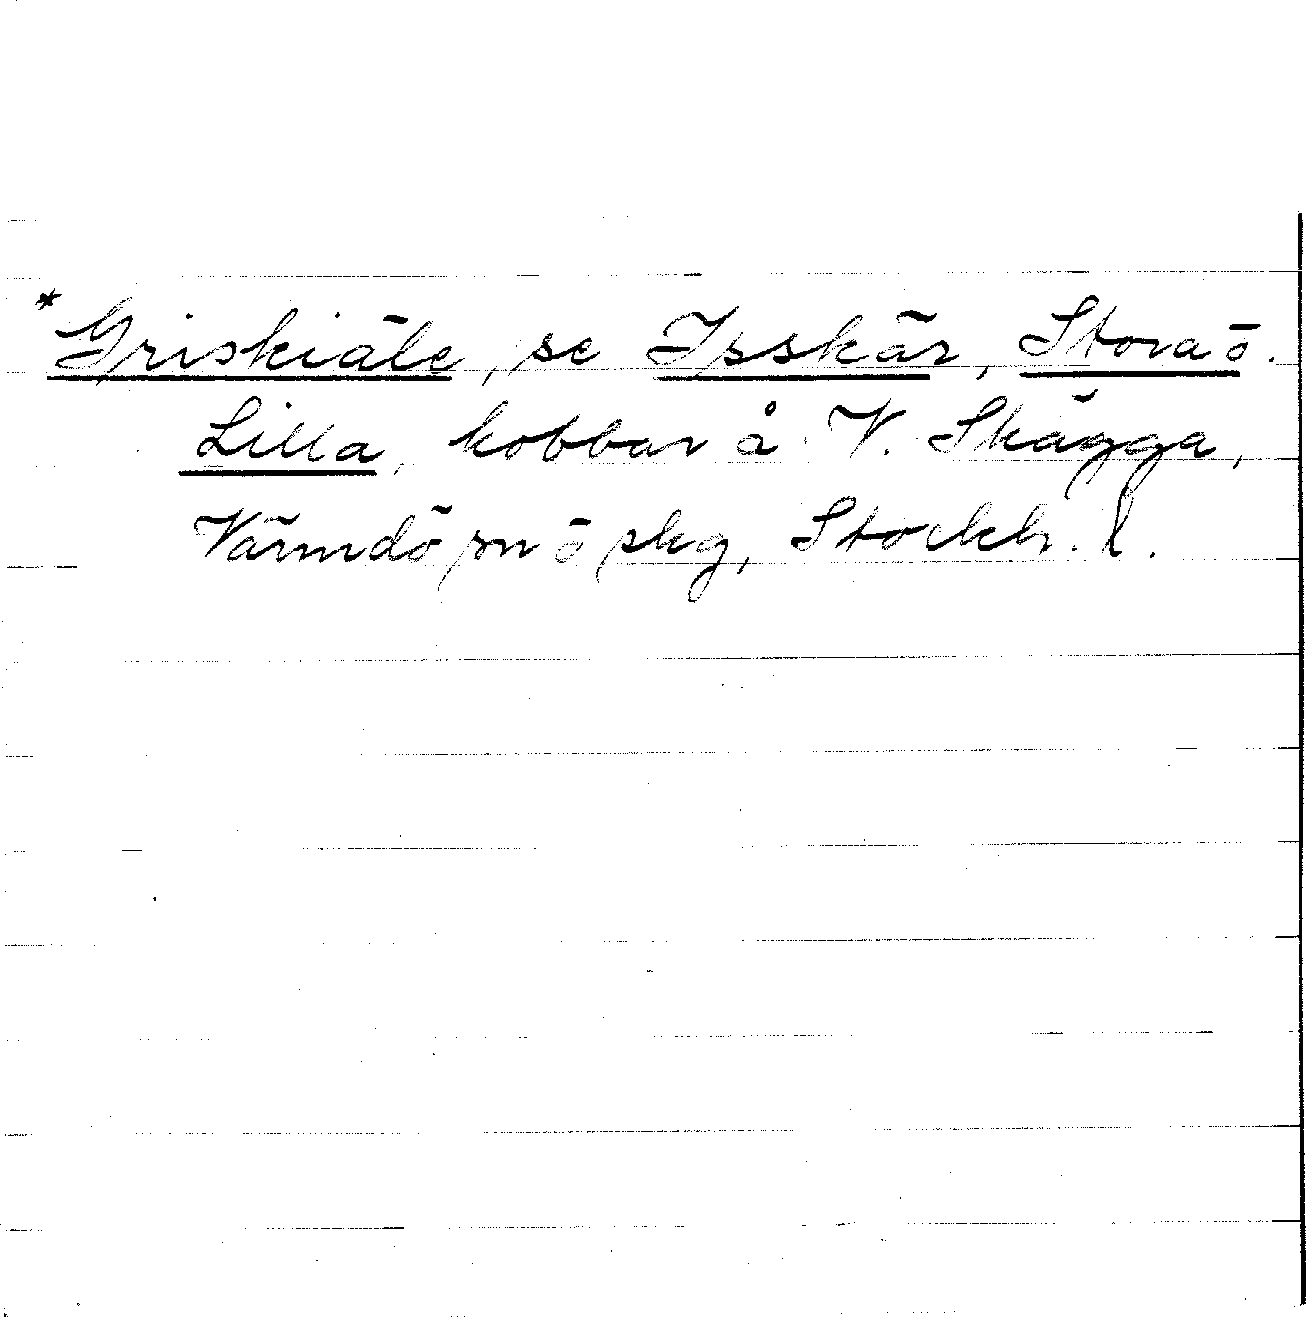 *Griskiäle, se Ipsskär, Stora o.
Lilla, kobbar å V. Skägga,
Värmdö sn o skg, Stockh. l.